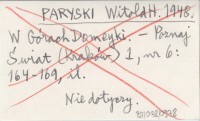 PARYSKI Witold H. 1948.
W Górach Domeyki. — Poznaj
Świat (Kraków) 1, nr 6:
164-169, il.
Nie dotyczy.